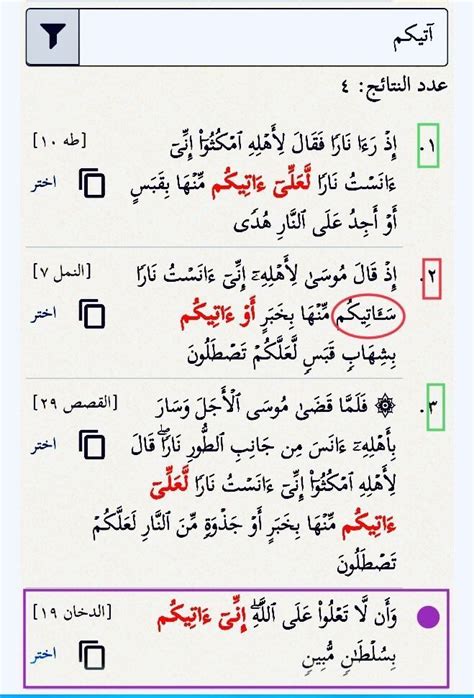 آتيكم
عدد النتائج: ٤
١. إِذۡ رَءَا نَارٗا فَقَالَ لِأَهۡلِهِ ٱمۡكُثُوٓاْ إِنِّيٓ [طه ١٠]
ءَانَسۡتُ نَارٗا لَّعَلِّيٓ ءَاتِيكُم مِّنۡهَا بِقَبَسٍ اختر
أَوۡ أَجِدُ عَلَى ٱلنَّارِ هُدٗى
٢. إِذۡ قَالَ مُوسَىٰ لِأَهۡلِهِۦٓ إِنِّيٓ ءَانَسۡتُ نَارٗا [النمل ٧]
سَـَٔاتِيكُم مِّنۡهَا بِخَبَرٍ أَوۡ ءَاتِيكُم اختر
بِشِهَابٖ قَبَسٖ لَّعَلَّكُمۡ تَصۡطَلُونَ
٣. ۞ فَلَمَّا قَضَىٰ مُوسَى ٱلۡأَجَلَ وَسَارَ [القصص ٢٩]
بِأَهۡلِهِۦٓ ءَانَسَ مِن جَانِبِ ٱلطُّورِ نَارٗاۖ قَالَ اختر
لِأَهۡلِهِ ٱمۡكُثُوٓاْ إِنِّيٓ ءَانَسۡتُ نَارٗا لَّعَلِّيٓ
ءَاتِيكُم مِّنۡهَا بِخَبَرٍ أَوۡ جَذۡوَةٖ مِّنَ ٱلنَّارِ لَعَلَّكُمۡ
تَصۡطَلُونَ
وَأَن لَّا تَعۡلُواْ عَلَى ٱللَّهِۖ إِنِّيٓ ءَاتِيكُم [الدخان ١٩]
بِسُلۡطَٰنٖ مُّبِينٖ اختر